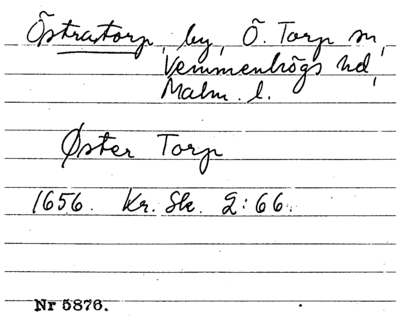 Östratorp, by, Ö. Torp sn,
Vemmenhögs hd,
Malm. l.
Øster Torp
1656. Kr. Sk. 2:66.
Nr 5876.